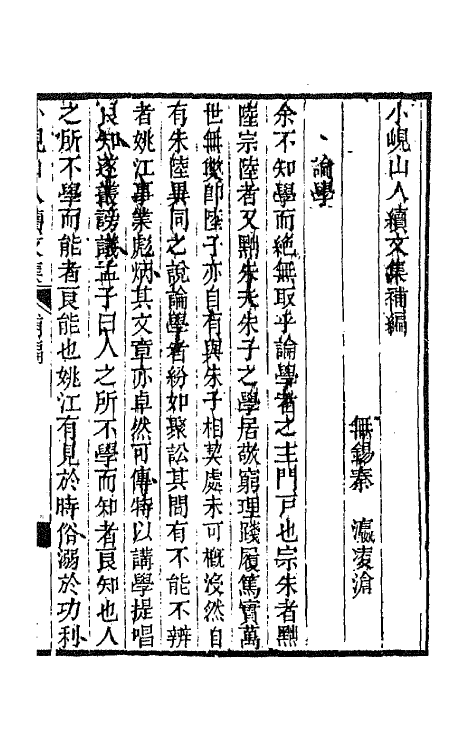 小峴山人續文集補編
無錫秦 瀛淩滄
論學
余不知學而絶無取乎論學者之主門戸也宗朱者黜
陸宗陸者又黜朱夫朱子之學居敬窮理踐履篤實萬
世無獘卽陸子亦自有與朱子相契處未可概沒然自
有朱陸異同之說論學者紛如聚訟其間有不能不辨
者姚江事業彪炳其文章亦卓然可傳特以講學提唱
良知遂叢謗議孟子曰人之所不學而知者良知也人
之所不學而能者良能也姚江有見於時俗溺於功利
小峴山人續文集 補編